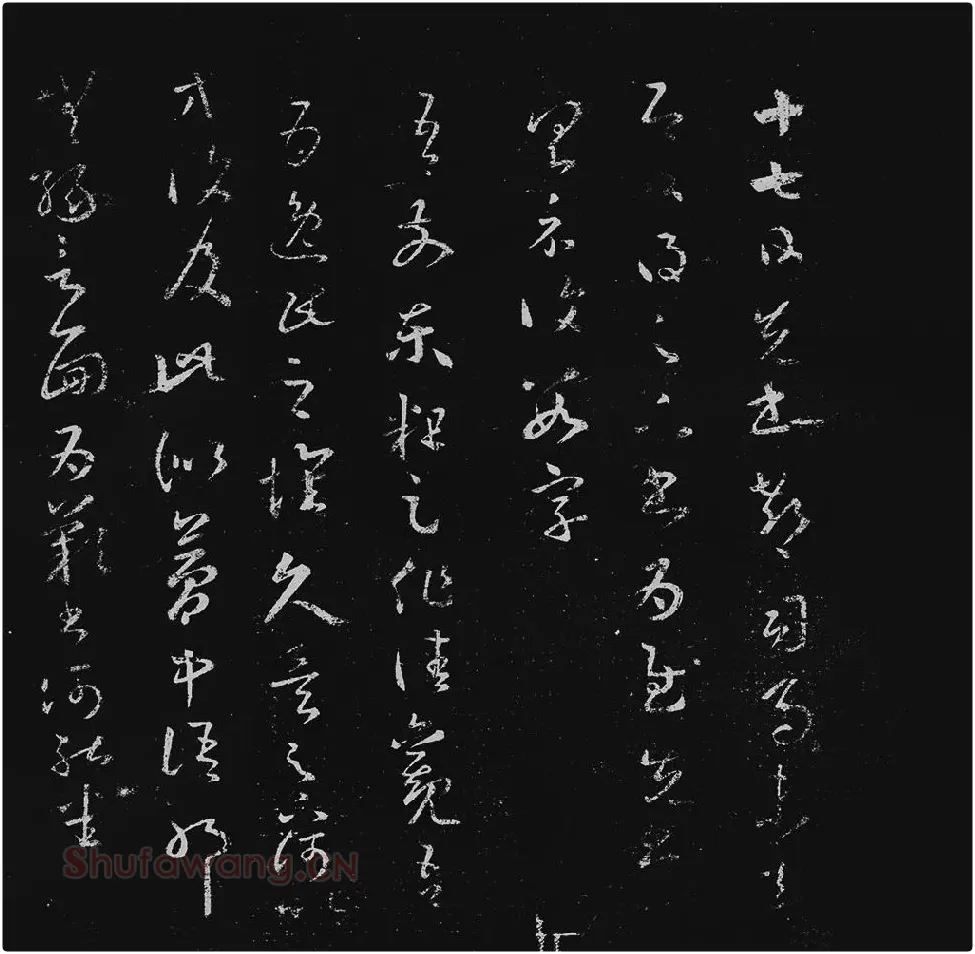 十七日先書郗司馬未去
即日得足下書為慰先書
以具示復數字
吾前東粗足作佳觀吾
為逸民之懷久矣足下何以
方復及此似夢中語耶
無緣言面為歎書何能悉
Shufawang.CN